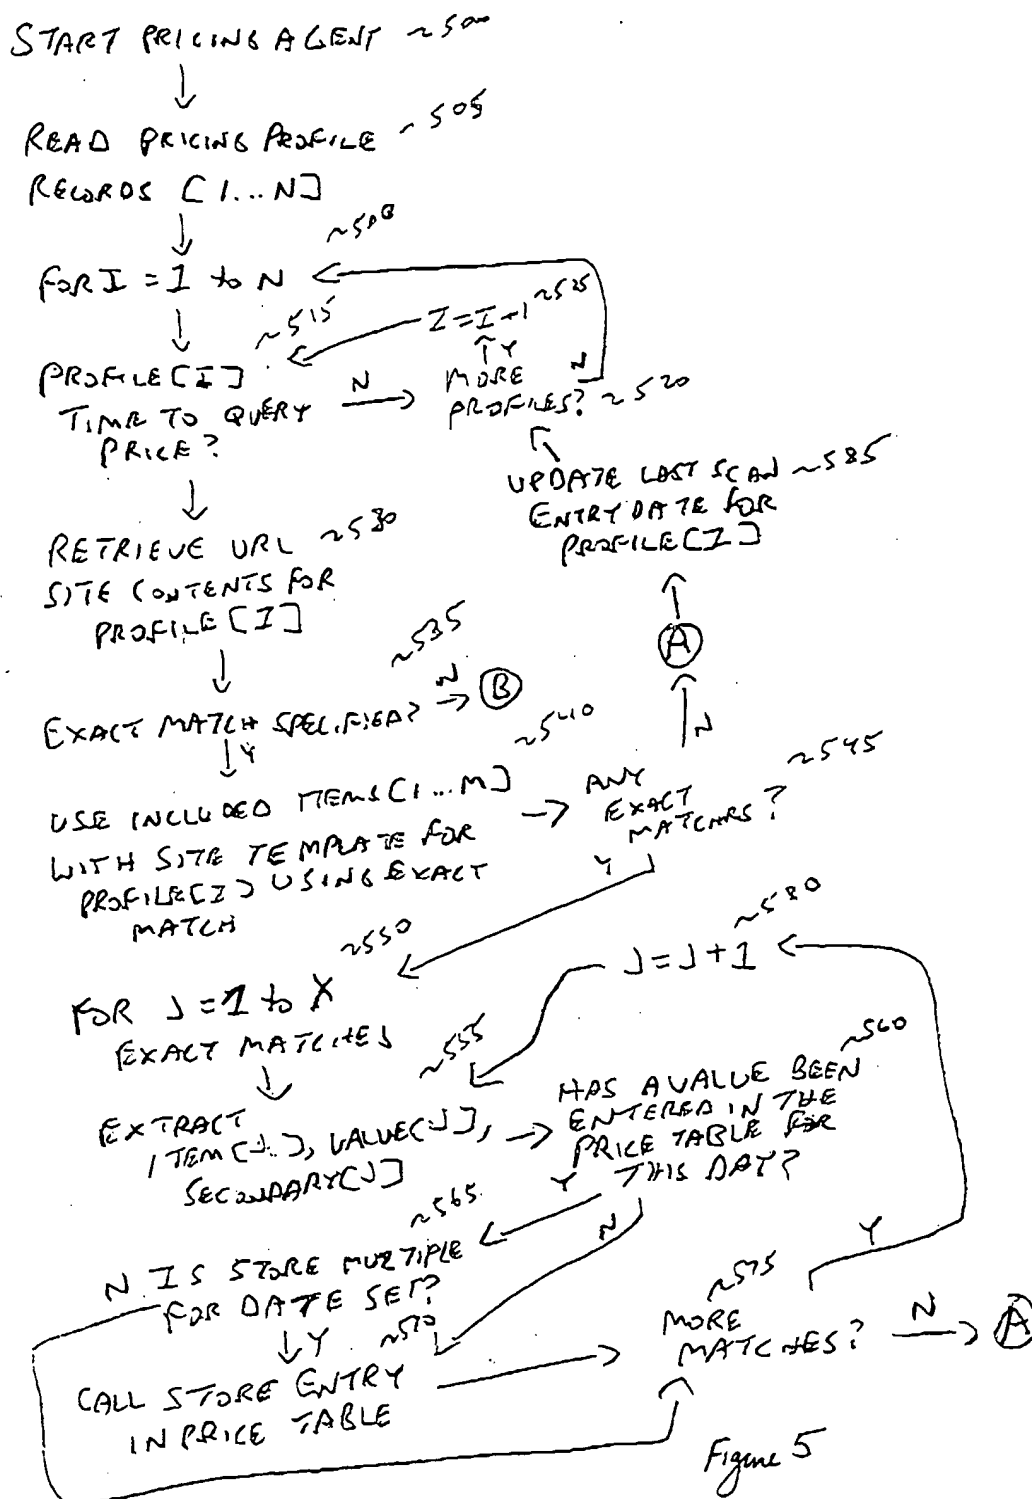 START PRICING AGENT ~500
READ PRICING PROFILE ~505
RECORDS [1...N]
FOR I = 1 to N
~515
I=I+1 ~525
PROFILE[I]
TIME TO QUERY
PRICE?
N
Y
MORE
PROFILES? ~520
N
UPDATE LAST SCAN ~585
ENTRY DATE FOR
PROFILE[I]
RETRIEVE URL ~530
SITE CONTENTS FOR
PROFILE[I]
A
N
~535
EXACT MATCH SPECIFIED?
N
B
Y
~540
USE INCLUDED ITEMS[1...M]
WITH SITE TEMPLATE FOR
PROFILE[I] USING EXACT
MATCH
ANY
EXACT
MATCHES?
~545
Y
~550
FOR J = 1 to X
EXACT MATCHES
J=J+1
~580
~555
EXTRACT
ITEM[J], VALUE[J],
SECONDARY[J]
~560
HAS A VALUE BEEN
ENTERED IN THE
PRICE TABLE FOR
THIS DAY?
Y
N
~565
N IS STORE MULTIPLE
FOR DATE SET?
Y
~570
CALL STORE ENTRY
IN PRICE TABLE
~575
MORE
MATCHES?
Y
N
A
Figure 5